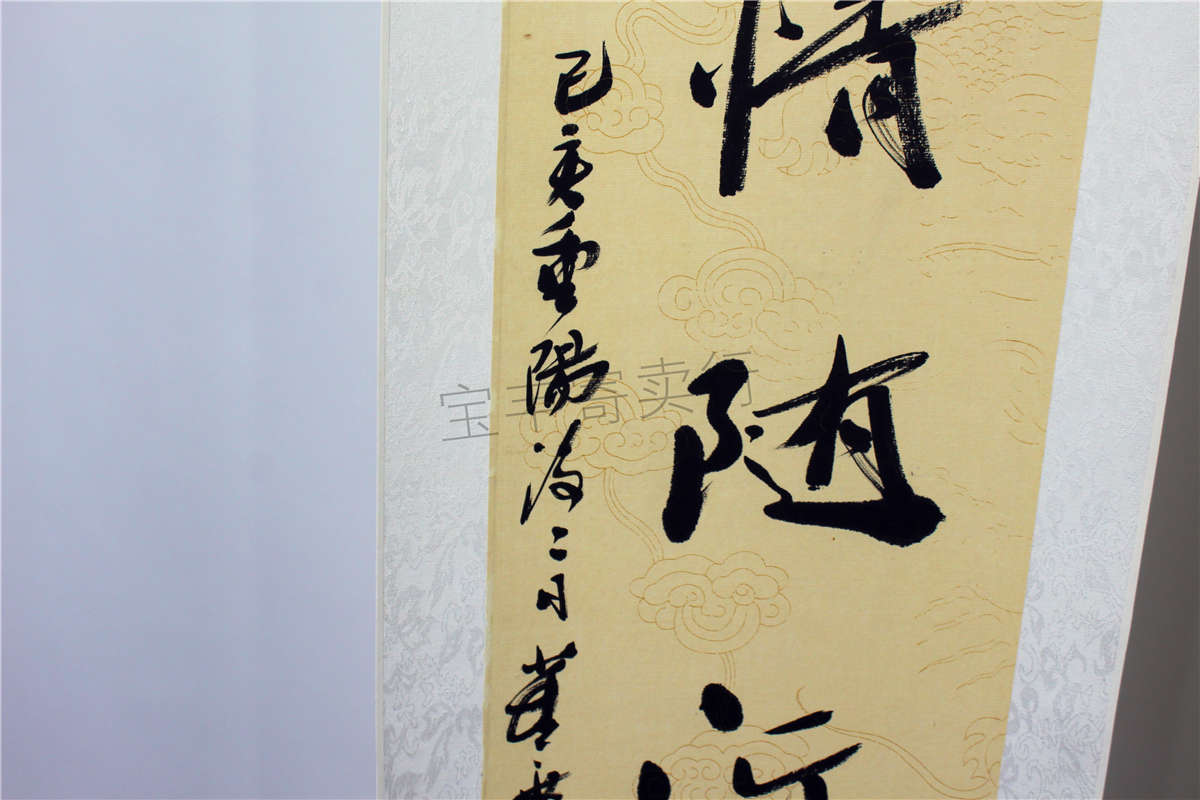 情随
己亥重陽後二日
宝丰寄卖行